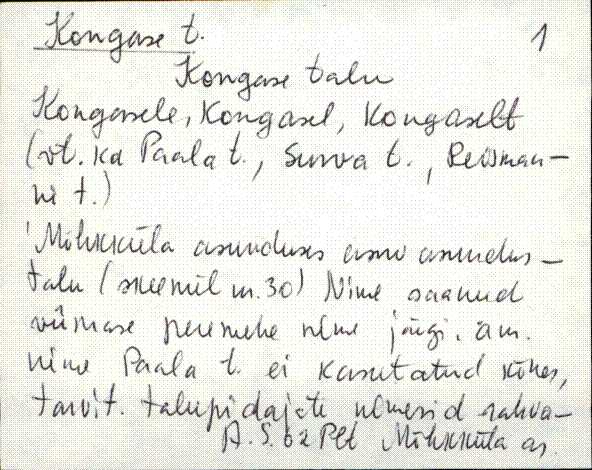 Kongase t. 1
Kongase talu
Kongasele, Kongasel, Kongaselt
(vt. ka Paala t., Surva t., Reisman-
ni t.)
Mõhkküla asunduses asuv asundus-
talu (skeemil nr. 30) Nime saanud
viimase peremehe nime järgi. am.
nime Paala t. ei kasutatud kõnes,
tarvit. talupidajate nimesid rahva-
A. S. 62 Plt Mõhkküla as.